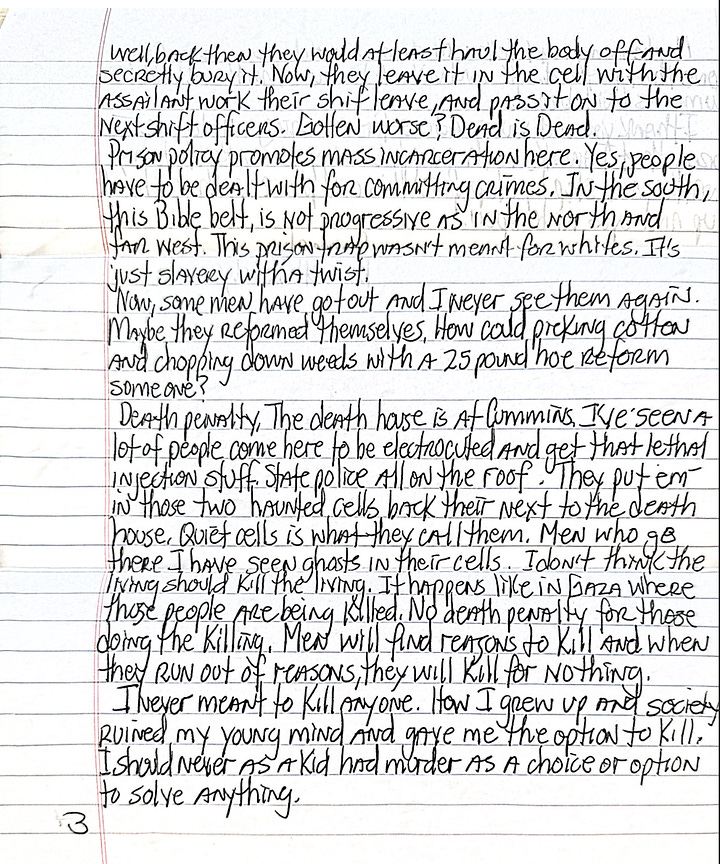 Well, back then they would at least haul the body off and
secretly bury it. Now, they leave it in the cell with the
assailant work their shif leave, and pass it on to the
next shift officers. Gotten worse? Dead is Dead.
Prison policy promotes mass incarceration here. Yes, people
have to be dealt with for committing crimes. In the south,
this Bible belt, is not progressive as in the north and
far west. This prison trap wasn't meant for whites. It's
just slavery with a twist.
Now, some men have got out and I never see them again.
Maybe they reformed themselves. How could picking cotton
and chopping down weeds with a 25 pound hoe reform
someone?
Death penalty, The death house is at Cummins, I've seen a
lot of people come here to be electrocuted and get that lethal
injection stuff. State police all on the roof. They put em
in those two haunted cells, back their next to the death
house. Quiet cells is what they call them. Men who go
there I have seen ghosts in their cells. I don't think the
living should kill the living. It happens like in Gaza where
those people are being killed. No death penalty for those
doing the killing. Men will find reasons to kill and when
they run out of reasons, they will kill for nothing.
I never meant to kill anyone. How I grew up and society
ruined my young mind and gave me the option to kill.
I should never as a kid had murder as a choice or option
to solve anything.
3